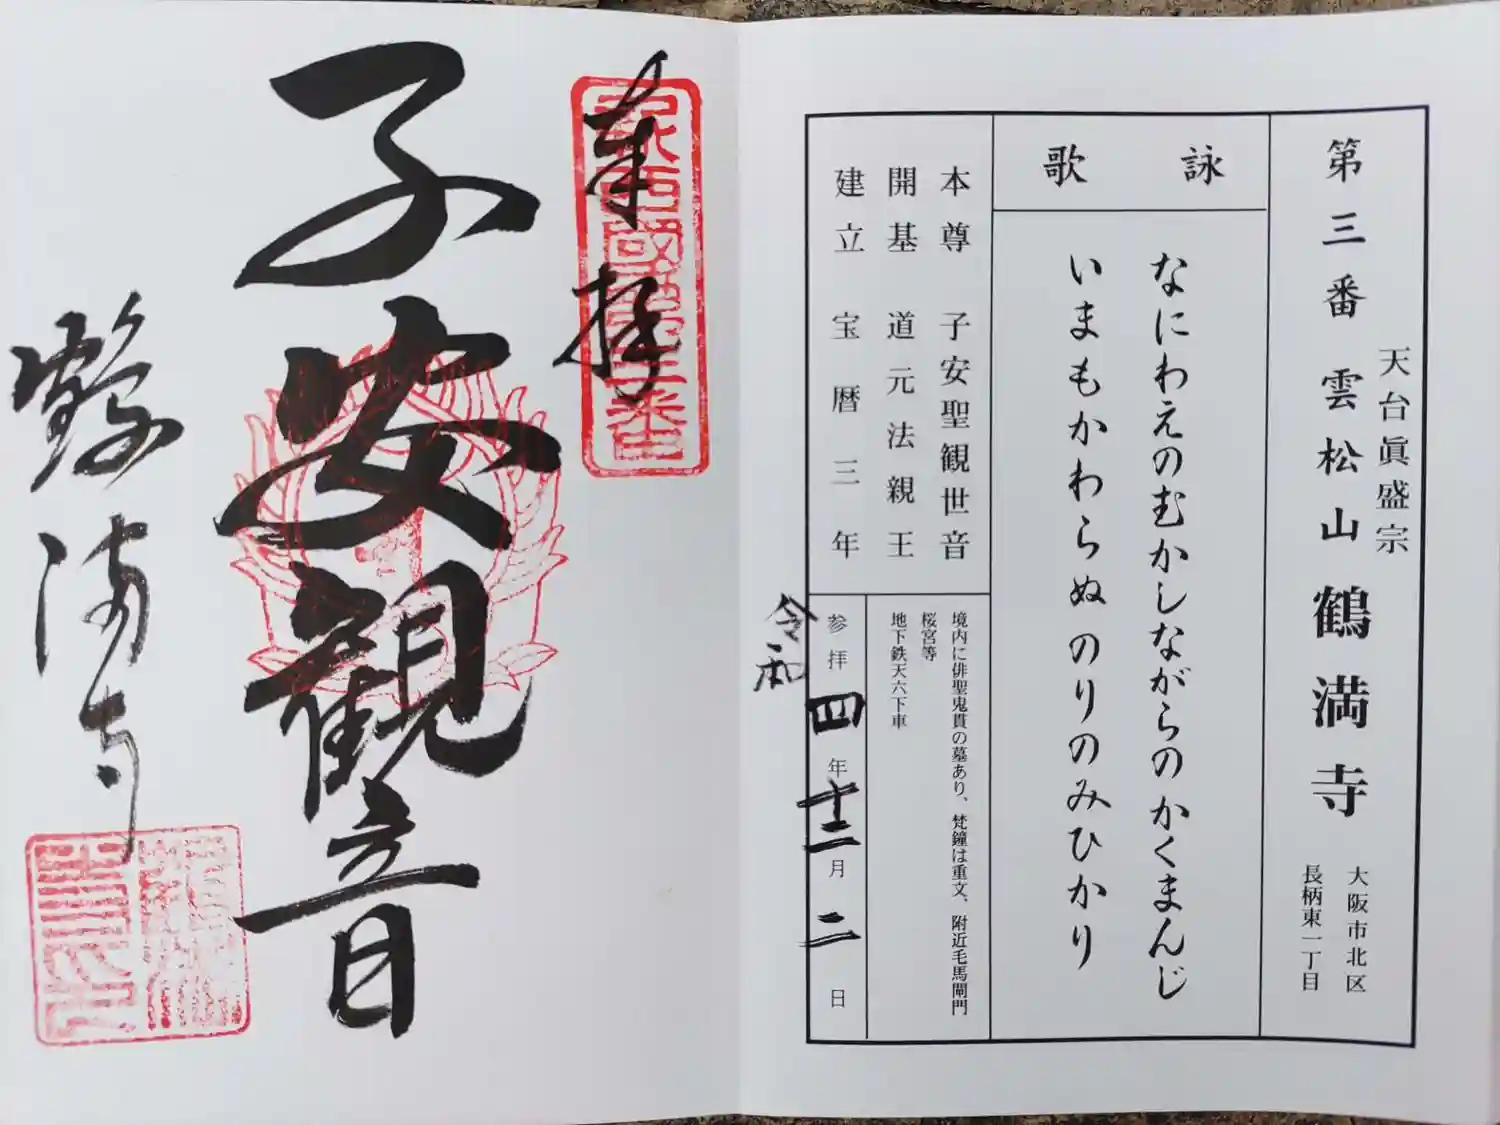 天台眞盛宗
第三番 雲松山 鶴満寺
大阪市北区
長柄東一丁目
詠歌
なにわえのむかしながらのかくまんじ
いまもかわらぬのりのみひかり
本尊 子安聖観世音
開基 道元法親王
建立 宝暦三年
境内に俳聖鬼貫の墓あり、梵鐘は重文、附近毛馬閘門
桜宮等
地下鉄天六下車
令和
参拝四年十二月二日
奉拝
子安観音
鶴満寺